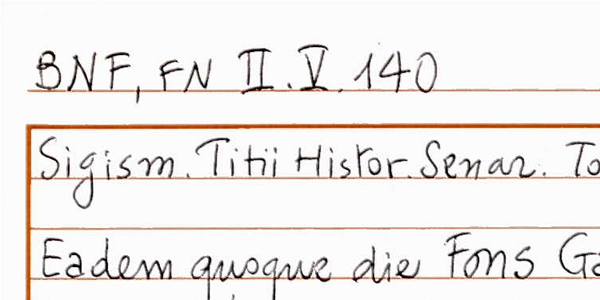 BNF, FN II.V.140
Sigism. Titii Histor. Senar. To
Eadem quoque die Fons Ga